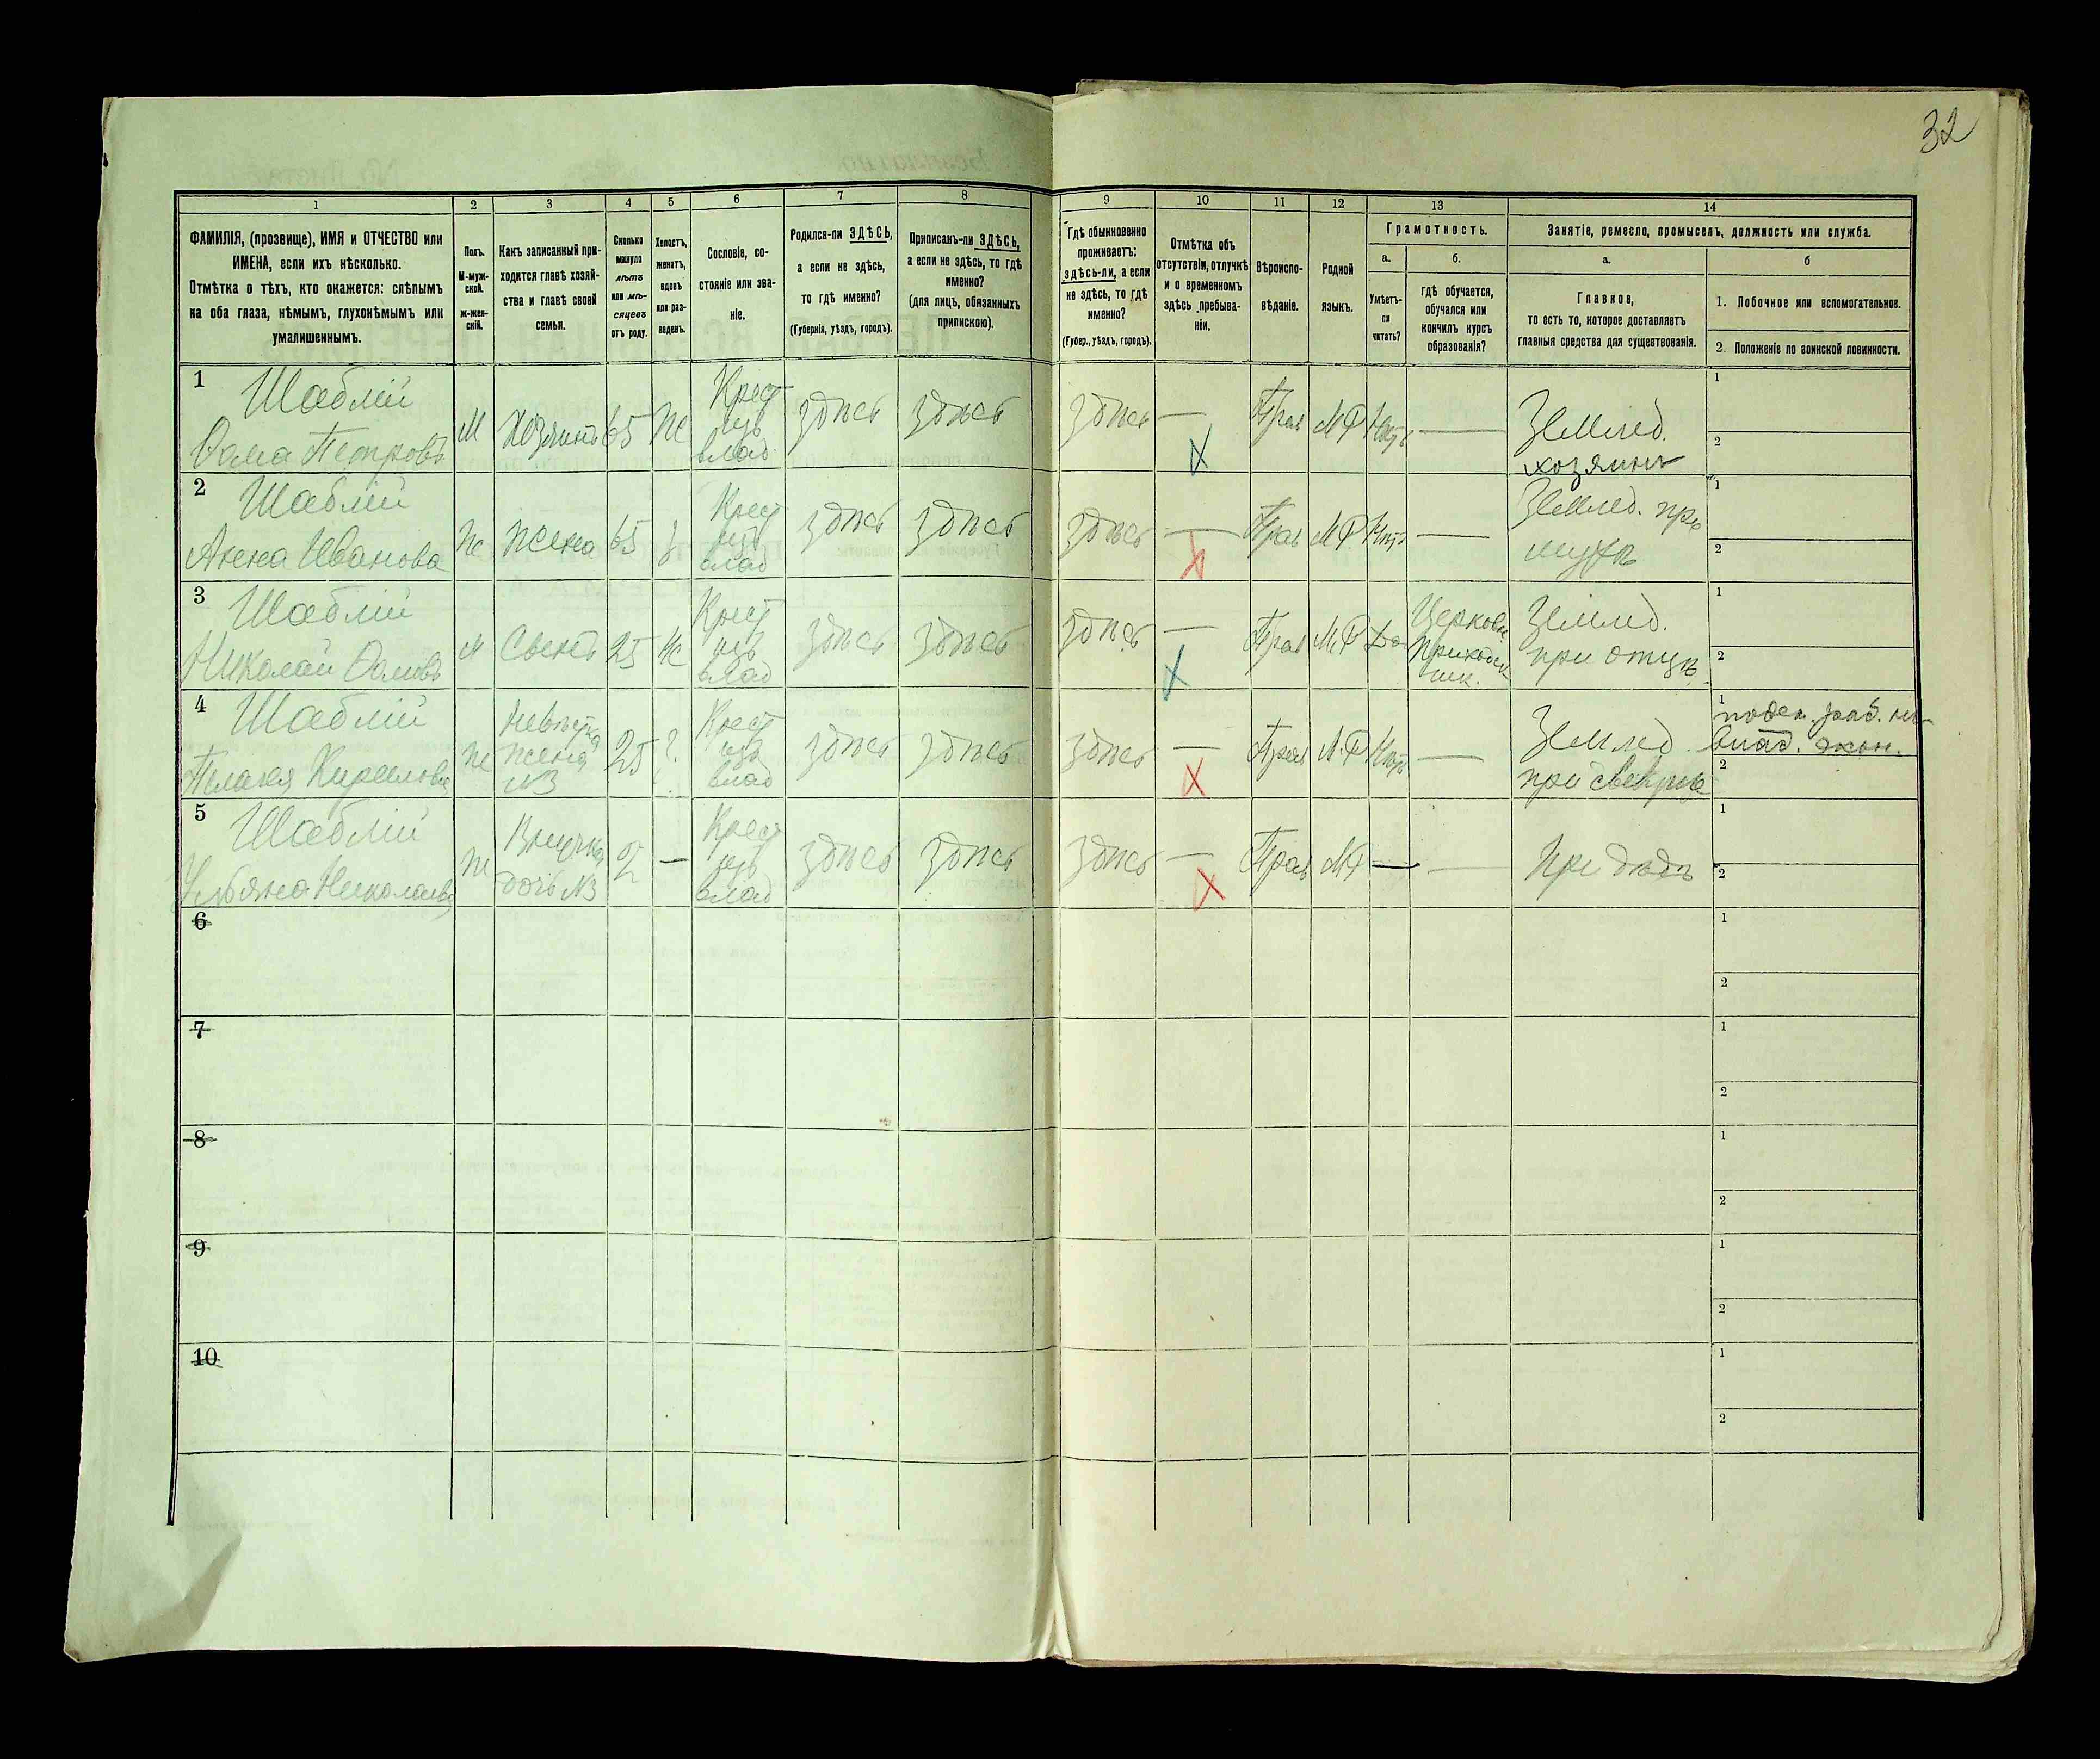 32
1 2 3 4 5 6 7 8 9 10 11 12 13 14
ФАМИЛІЯ, (прозвище), ИМЯ и ОТЧЕСТВО или
ИМЕНА, если ихъ нѣсколько.
Отмѣтка о тѣхъ, кто окажется: слѣпымъ
на оба глаза, нѣмымъ, глухонѣмымъ или
умалишеннымъ.
Полъ.
М-муж-
ской.
ж-жен-
скій.
Какъ записанный при-
ходится главѣ хозяй-
ства и главѣ своей
семьи.
Сколько
минуло
лѣтъ
или мѣ-
сяцевъ
отъ роду.
Холостъ,
женатъ,
вдовъ
или раз-
веденъ.
Сословіе, со-
стояніе или зва-
ніе.
Родился-ли ЗДѢСЬ,
а если не здѣсь,
то гдѣ именно?
(Губернія, уѣздъ, городъ).
Приписанъ-ли ЗДѢСЬ,
а если не здѣсь, то гдѣ
именно?
(для лицъ, обязанныхъ
припискою).
Гдѣ обыкновенно
проживаетъ:
здѣсь-ли, а если
не здѣсь, то гдѣ
именно?
(Губер., уѣздъ, городъ).
Отмѣтка объ
отсутствіи, отлучкѣ
и о временномъ
здѣсь пребыва-
ніи.
Вѣроиспо-
вѣданіе.
Родной
языкъ.
Грамотность.
а.
Умѣетъ-
ли
читать?
б.
гдѣ обучается,
обучался или
кончилъ курсъ
образованія?
Занятіе, ремесло, промыселъ, должность или служба.
а.
Главное,
то есть то, которое доставляетъ
главныя средства для существованія.
б
1. Побочное или вспомогательное.
2. Положеніе по воинской повинности.
1 Шаблій
Ѳома Петровъ
М
Хозяинъ
65
Ж
Крест
изъ
влад
здѣсь
здѣсь
здѣсь
—
Прав
МР
Нѣтъ
—
Землед.
хозяинъ
1
2
2 Шаблій
Анна Иванова
Ж
Жена
65
З
Крест
изъ
влад
здѣсь
здѣсь
здѣсь
—
Прав
МР
Нѣтъ
—
Землед. при
мужѣ
1
2
3 Шаблій
Николай Ѳомовъ
М
Сынъ
25
Ж
Крест
изъ
влад
здѣсь
здѣсь
здѣсь
—
Прав
МР
Да
Церковн.
Приходск
шк.
Землед.
при отцѣ
1
2
4 Шаблій
Пелагея Кирилова
Ж
Невѣстка
жена
№3
25
З
Крест
изъ
влад
здѣсь
здѣсь
здѣсь
—
Прав
МР
Нѣтъ
—
Землед
при свекрѣ
1
поден. раб. въ
влад. экон.
2
5 Шаблій
Ульяна Николаева
Ж
Внучка
дочь №3
2
—
Крест
изъ
влад
здѣсь
здѣсь
здѣсь
—
Прав
МР
—
—
При дѣдѣ
1
2
6
1
2
7
1
2
8
1
2
9
1
2
10
1
2